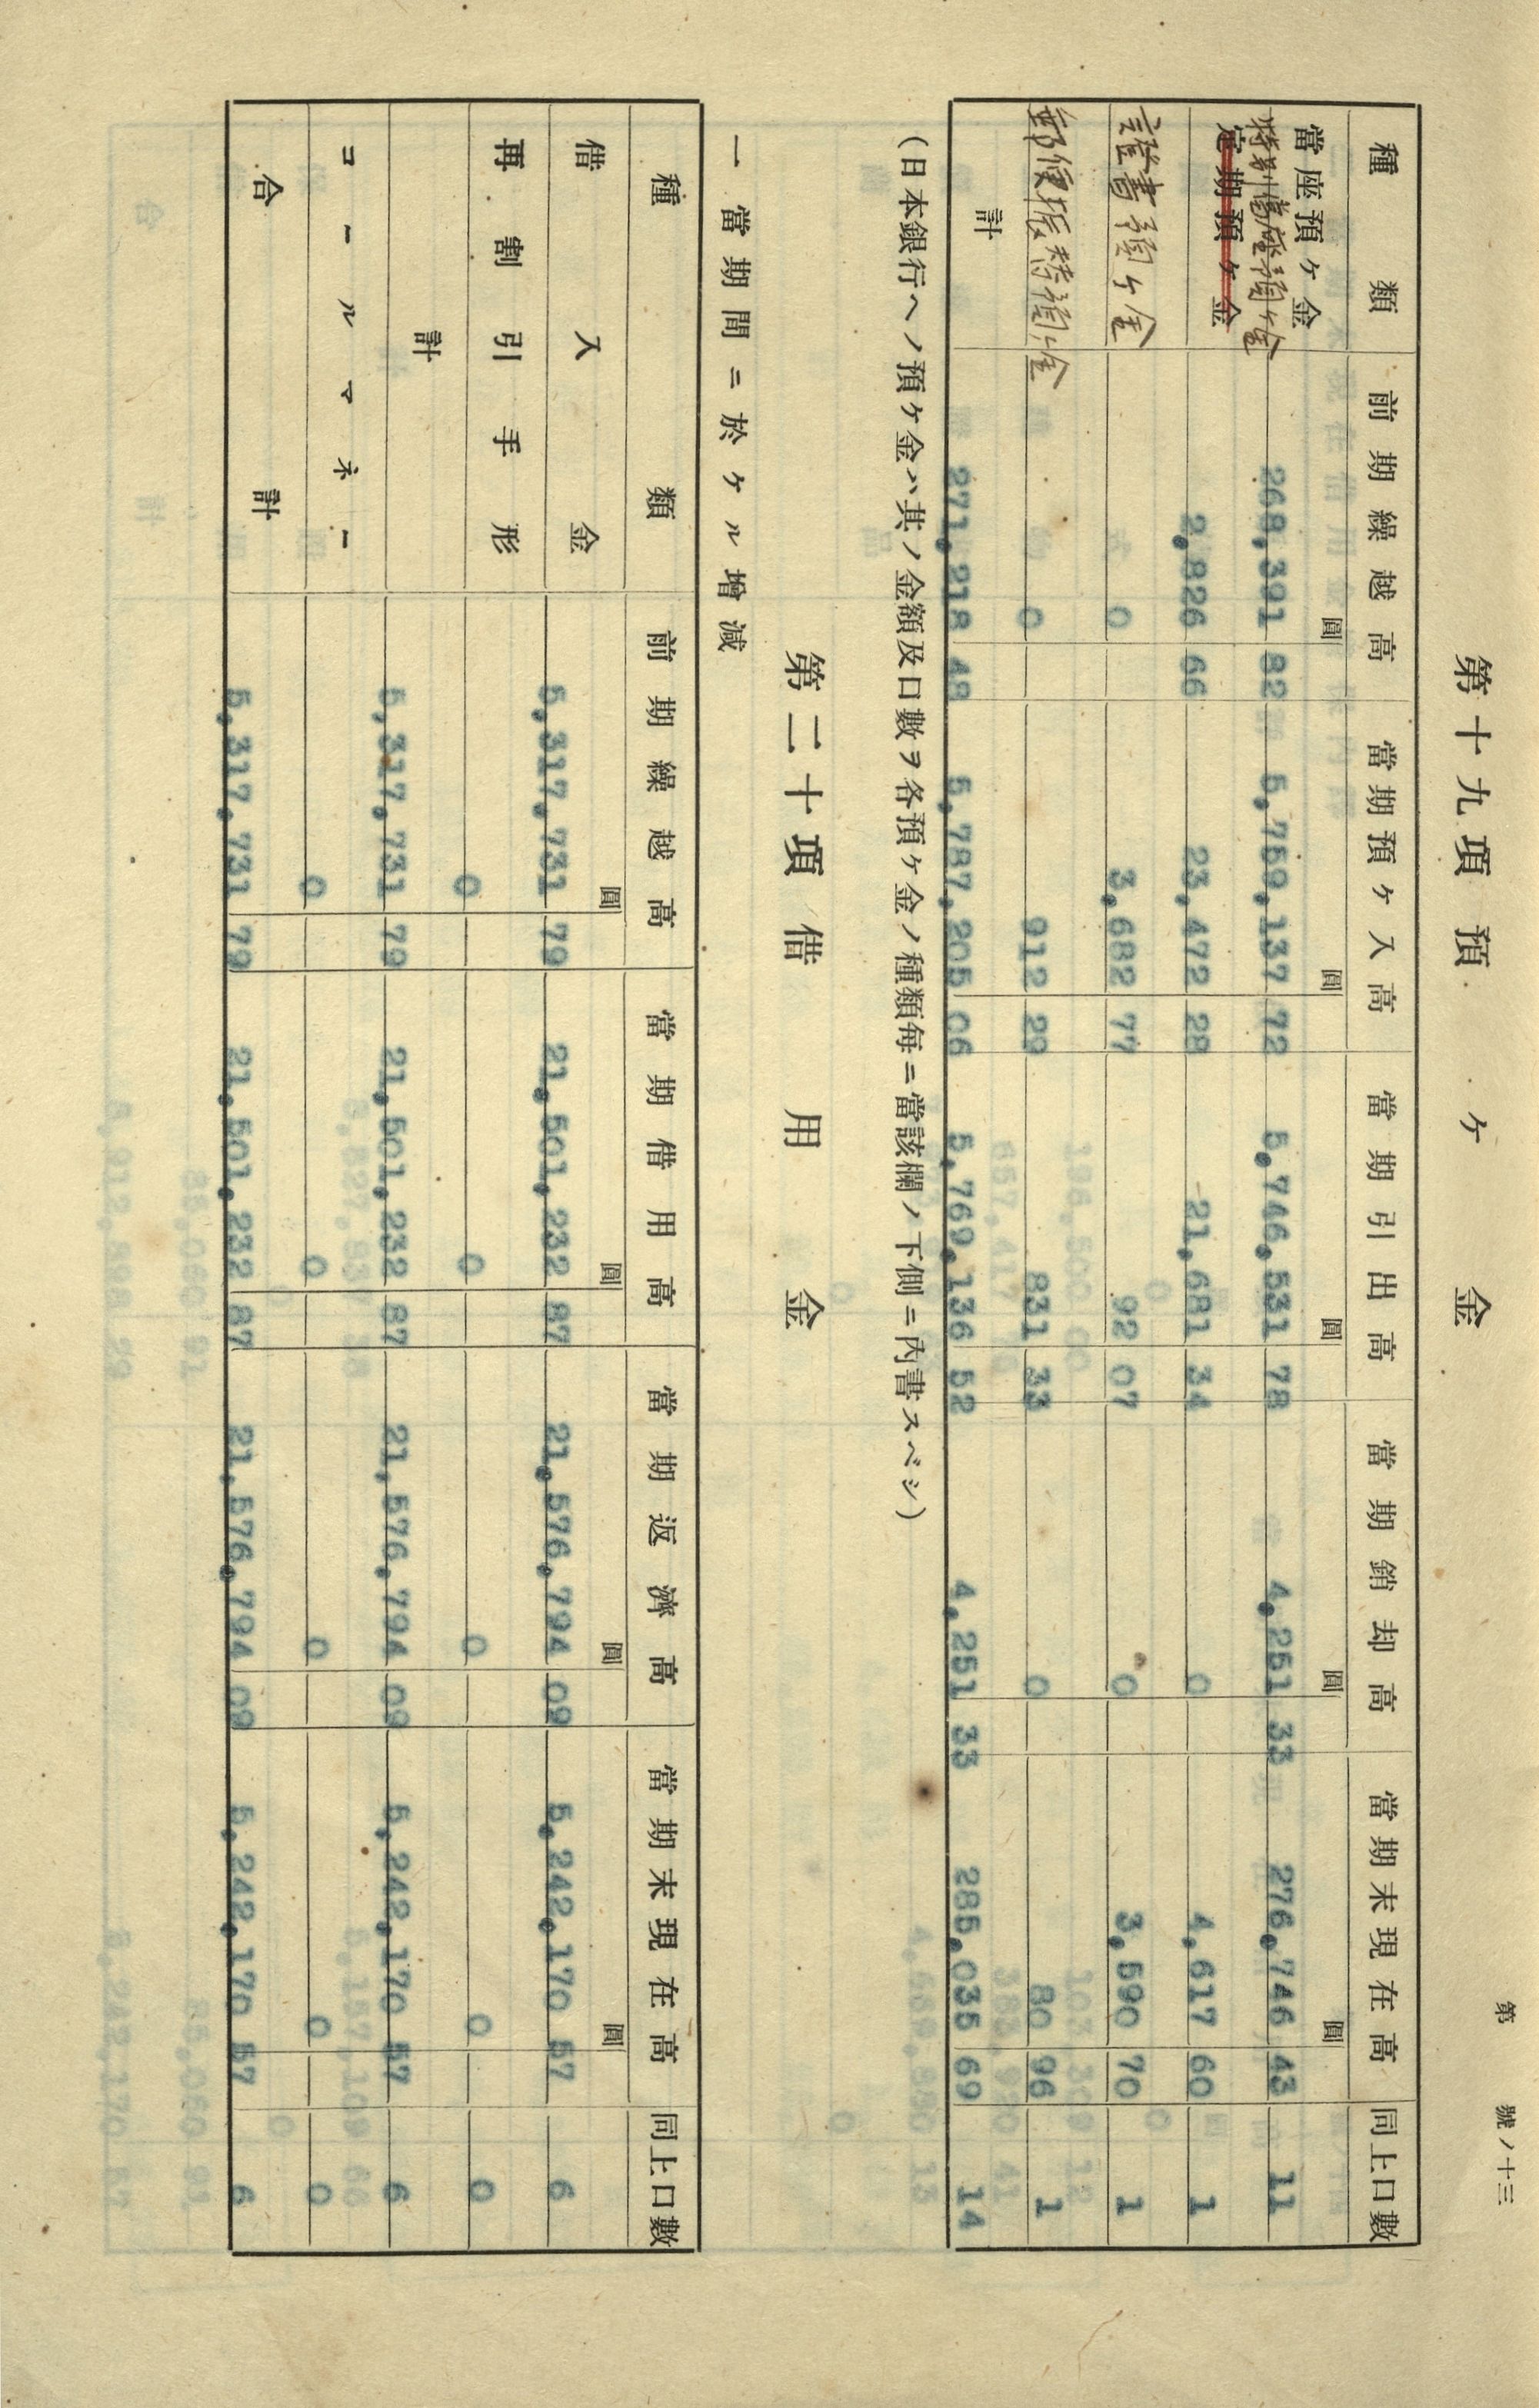 第　號ノ十三
第十九項 預ケ金
種類 前期繰越高 當期預ケ入高 當期引出高 當期銷却高 當期末現在高 同上口數
圓 圓 圓 圓 圓
當座預ケ金 268,391 82 5,759,137 72 5,746,531 78 4,251 33 276,746 43 11
特別當座預ケ金
定期預ケ金 2,826 66 23,472 28 21,681 34 0 4,617 60 1
證書預ケ金 0 3,682 77 92 07 0 3,590 70 1
郵便振替預ケ金 0 912 29 831 33 0 80 96 1
計 271,218 48 5,787,205 06 5,769,136 52 4,251 33 285,035 69 14
(日本銀行ヘノ預ケ金ハ其ノ金額及口數ヲ各預ケ金ノ種類每ニ當該欄ノ下側ニ內書スベシ)
第二十項 借用金
一 當期間ニ於ケル增減
種類 前期繰越高 當期借用高 當期返濟高 當期末現在高 同上口數
圓 圓 圓 圓
借入金 5,317,731 79 21,501,232 87 21,576,794 09 5,242,170 57 6
再割引手形 0 0 0 0 0
計 5,317,731 79 21,501,232 87 21,576,794 09 5,242,170 57 6
コールマネー 0 0 0 0 0
合計 5,317,731 79 21,501,232 87 21,576,794 09 5,242,170 57 6